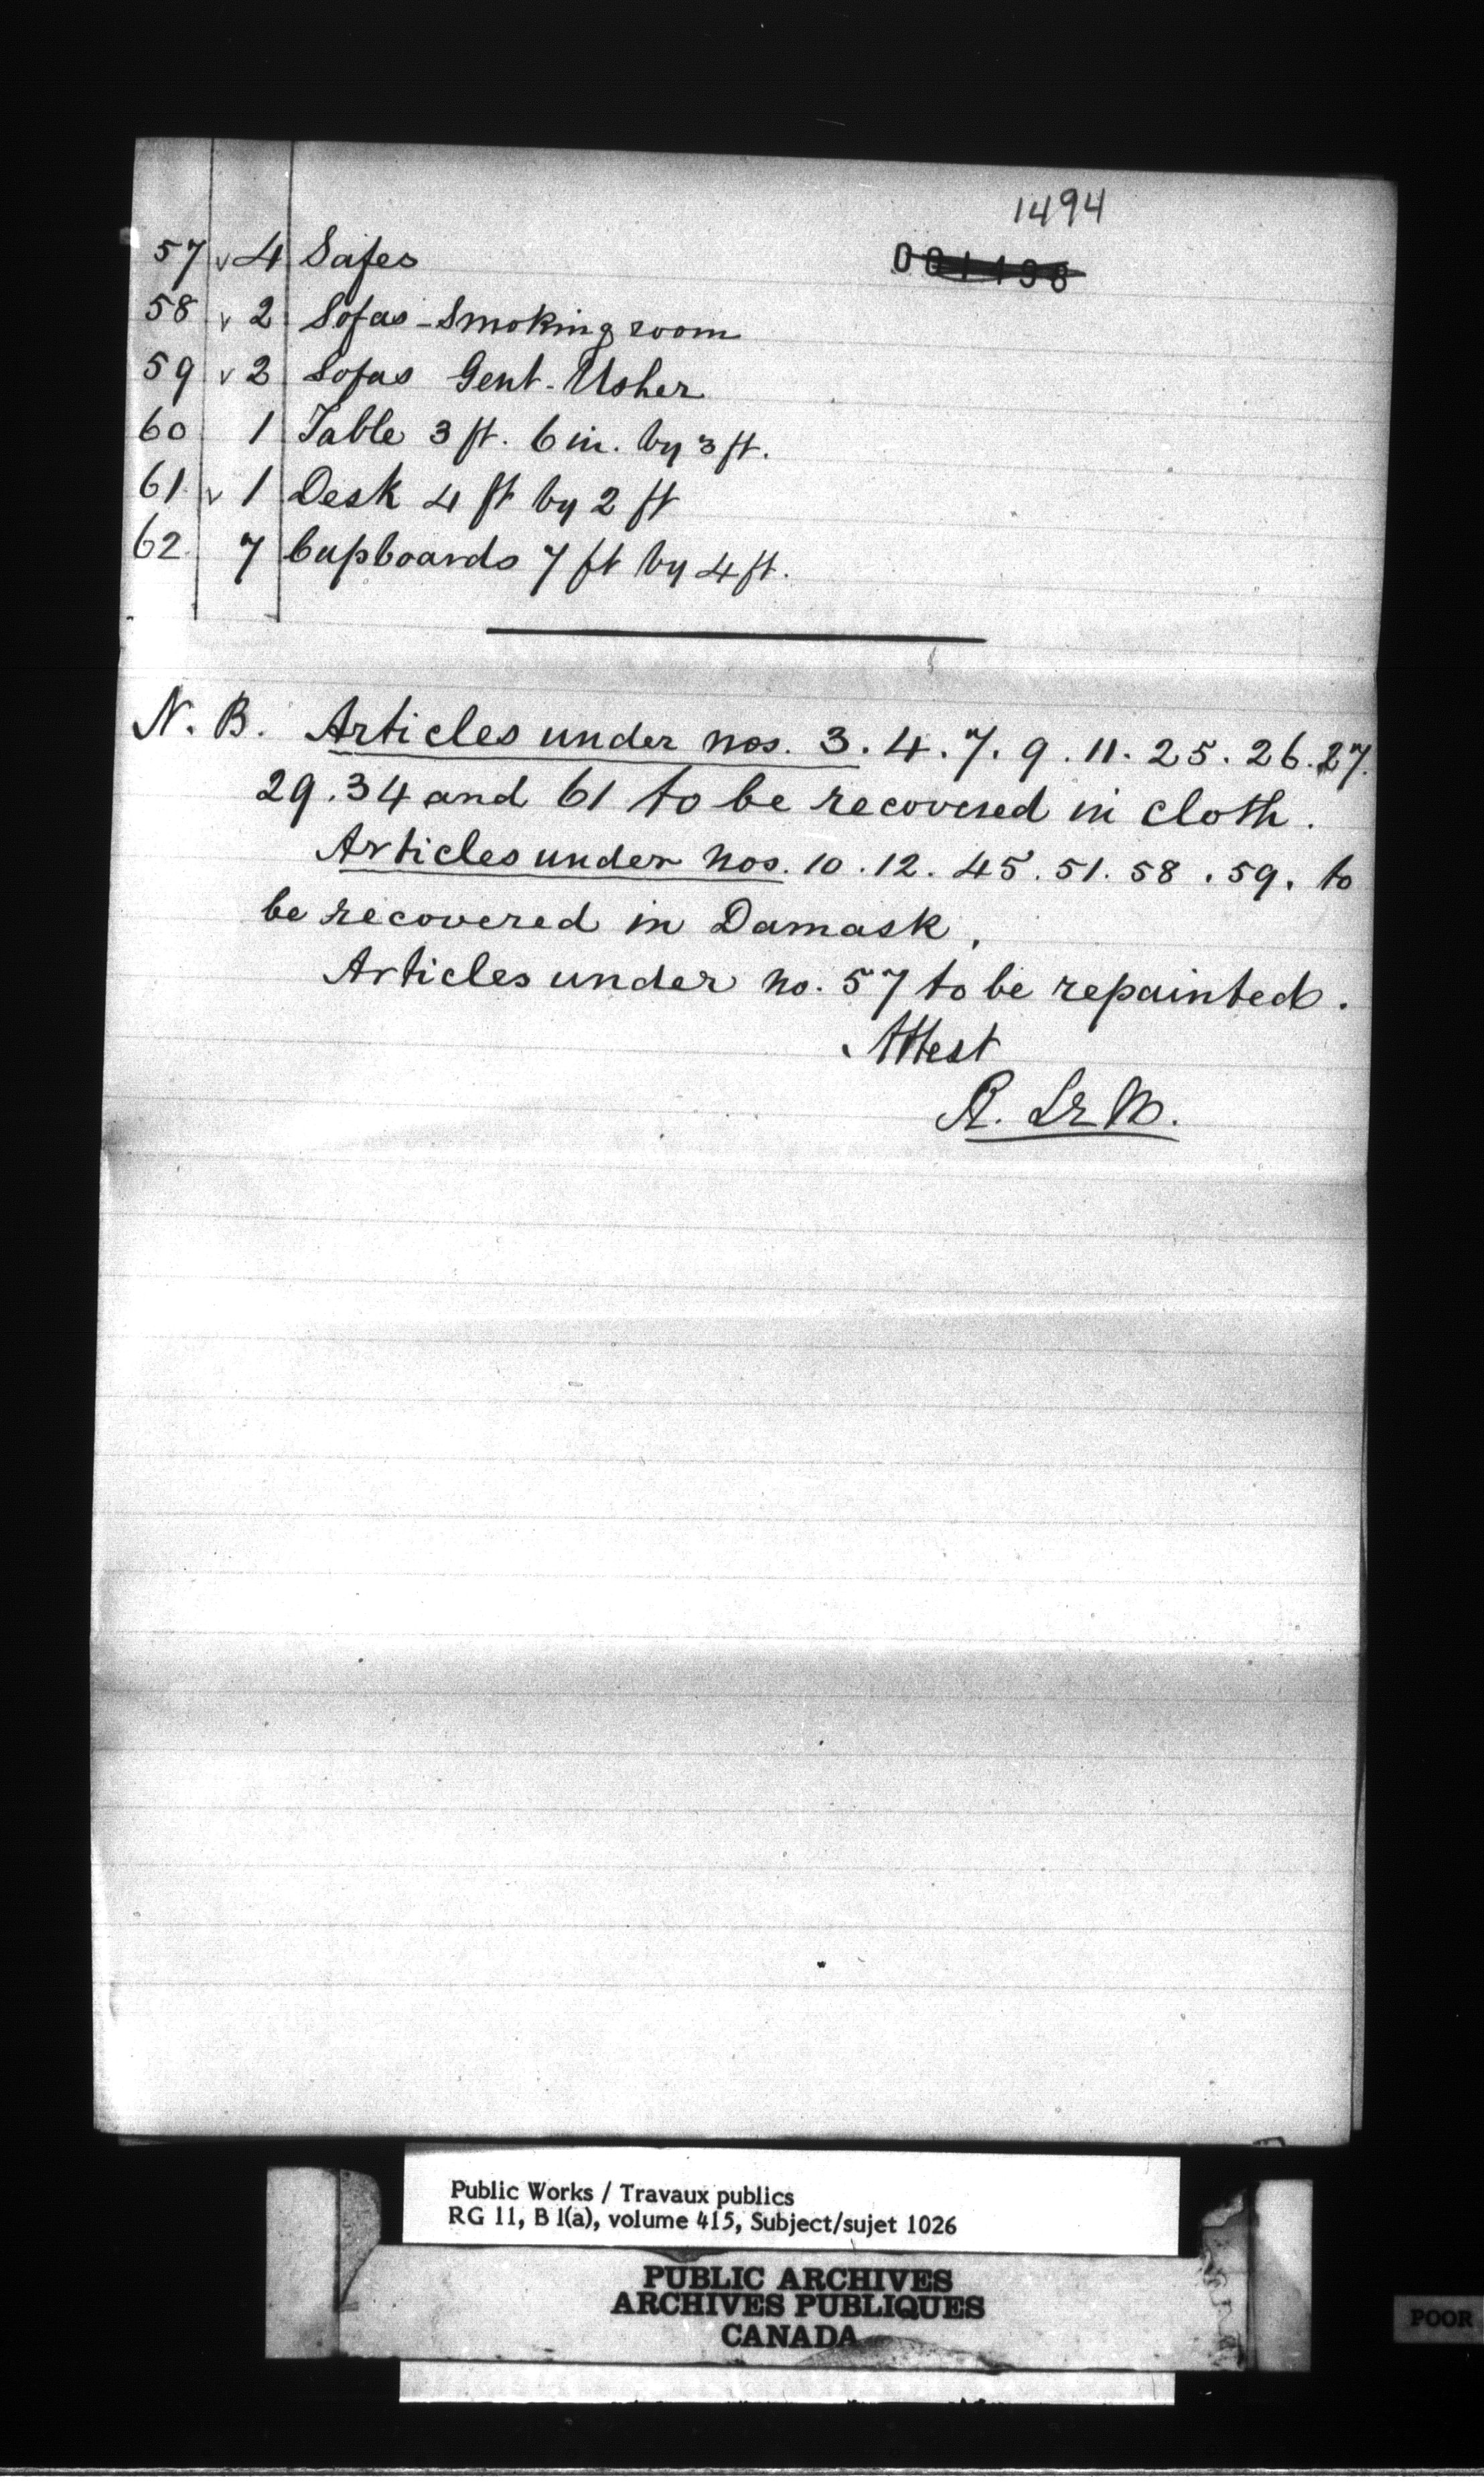 1494
57 v 4 Safes
58 v 2 Sofas - Smoking room
59 v 2 Sofas Gent. Usher
60 1 Table 3 ft. 6 in. by 3 ft.
61 v 1 Desk 4 ft by 2 ft
62 7 Cupboards 7 ft by 4 ft.
N. B. Articles under nos. 3. 4. 7. 9. 11. 25. 26. 27.
29. 34 and 61 to be recovered in cloth.
Articles under nos. 10. 12. 45. 51. 58. 59. to
be recovered in Damask.
Articles under no. 57 to be repainted.
Attest
R. Le M.
Public Works / Travaux publics
RG 11, B 1(a), volume 415, Subject/sujet 1026
PUBLIC ARCHIVES
ARCHIVES PUBLIQUES
CANADA
POOR